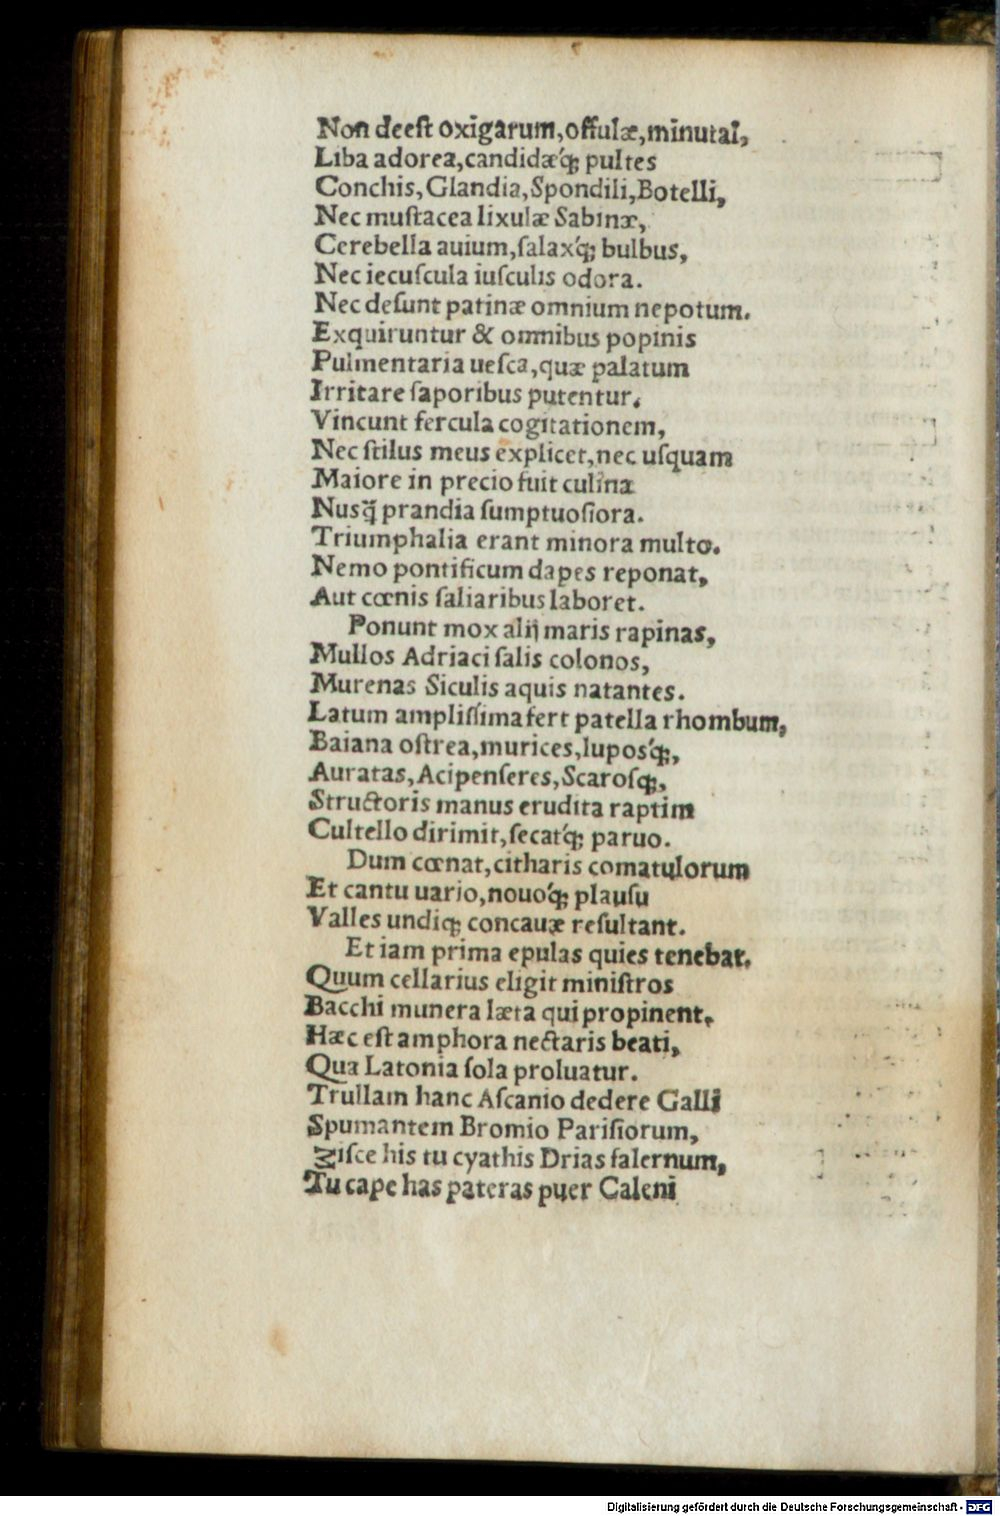 Non deeſt oxigarum, offulæ, minutal,
Liba adorea, candidæq́; pultes
Conchis, Glandia, Spondili, Botelli,
Nec muſtacea lixulæ Sabinæ,
Cerebella auium, ſalaxq́; bulbus,
Nec iecuſcula iuſculis odora.
Nec deſunt patinæ omnium nepotum.
Exquiruntur & omnibus popinis
Pulmentaria ueſca, quæ palatum
Irritare ſaporibus putentur.
Vincunt fercula cogitationem,
Nec ſtilus meus explicet, nec uſquam
Maiore in precio fuit culina
Nusq̃ prandia ſumptuoſiora.
Triumphalia erant minora multo.
Nemo pontificum dapes reponat,
Aut cœnis ſaliaribus laboret.
Ponunt mox alij maris rapinas,
Mullos Adriaci ſalis colonos,
Murenas Siculis aquis natantes.
Latum ampliſſima fert patella rhombum,
Baiana oſtrea, murices, luposq́;,
Auratas, Acipenſeres, Scaroſq́;,
Structoris manus erudita raptim
Cultello dirimit, ſecatq́; paruo.
Dum cœnat, citharis comatulorum
Et cantu uario, nouoq́; plauſu
Valles undiq; concauæ reſultant.
Et iam prima epulas quies tenebat.
Quum cellarius eligit miniſtros
Bacchi munera læta qui propinent.
Hæc eſt amphora nectaris beati,
Qua Latonia ſola proluatur.
Trullam hanc Aſcanio dedere Galli
Spumantem Bromio Pariſiorum,
Miſce his tu cyathis Drias falernum,
Tu cape has pateras puer Caleni
Digitalisierung gefördert durch die Deutsche Forschungsgemeinschaft - DFG